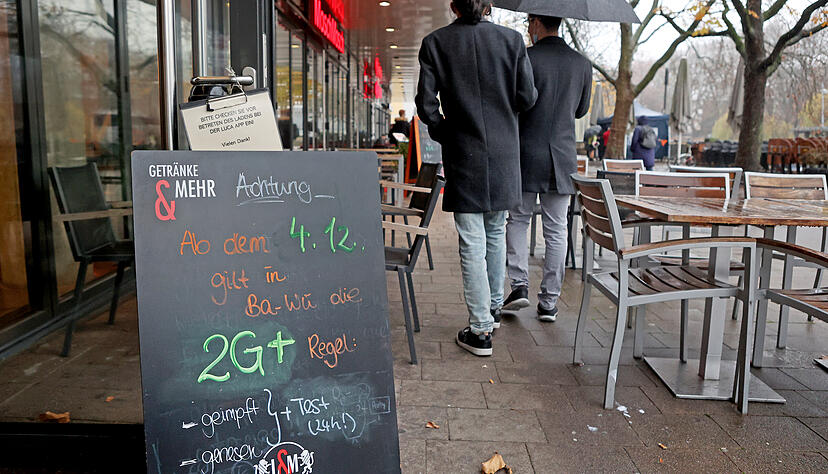 BITTE CHECKEN SIE VOR
BETRETEN DES LADENS BEI
DER LUCA APP EIN!
Vielen Dank!
GETRÄNKE
& MEHR
Achtung
Ab dem 4.12.
gilt in
Ba-Wü die
2G+ Regel:
- geimpft
+ Test
(24h!)
- genesen
L&M